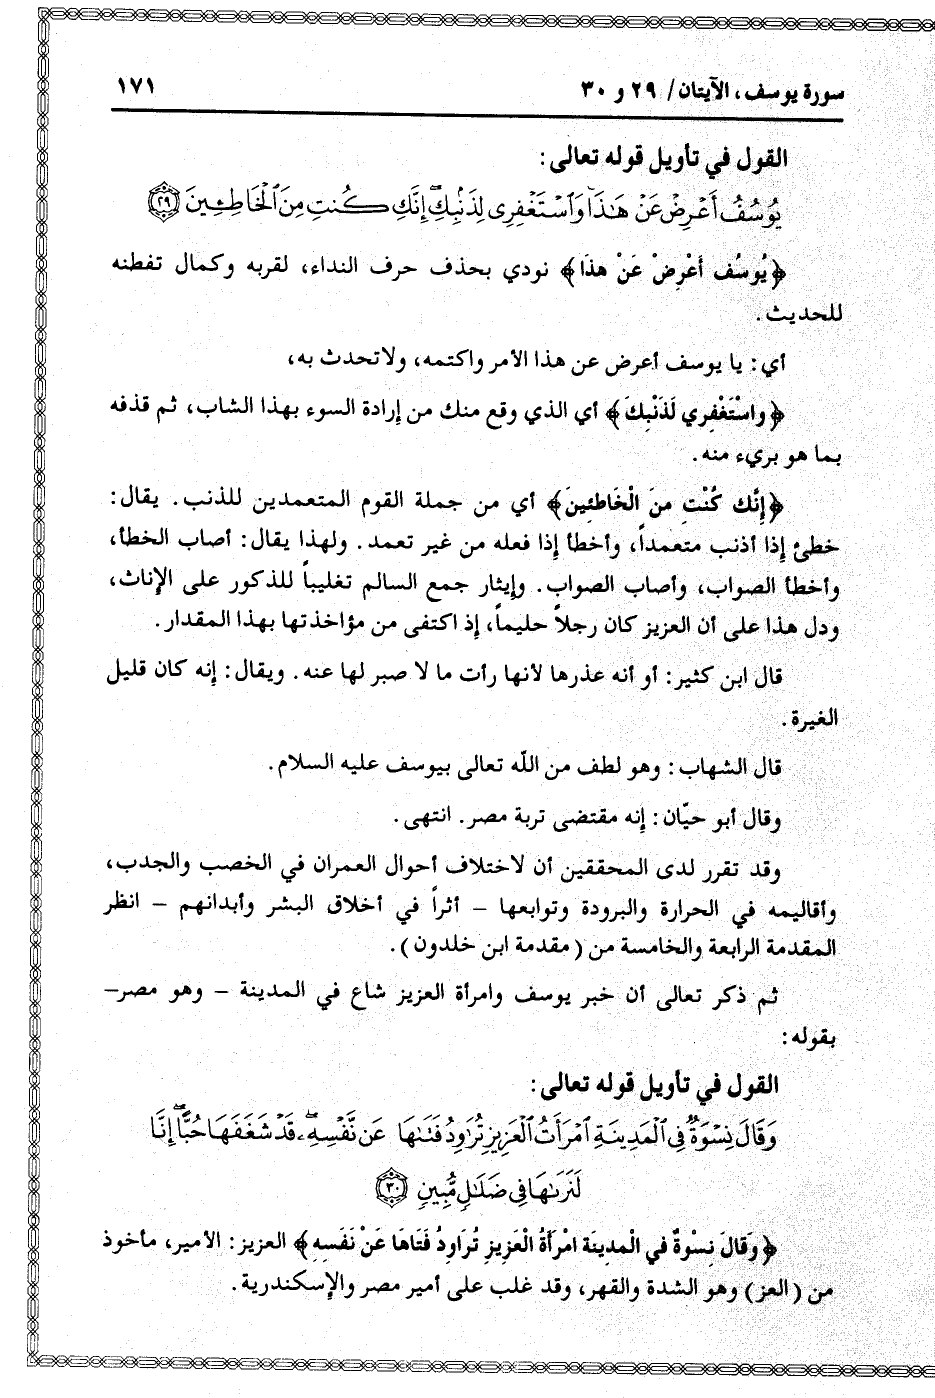 سورة يوسف، الآيتان/ ٢٩ و ٣٠ ١٧١
القول في تأويل قوله تعالى:
يُوسُفُ أَعْرِضْ عَنْ هَٰذَا وَٱسْتَغْفِرِى لِذَنۢبِكِ إِنَّكِ كُنتِ مِنَ ٱلْخَاطِئِينَ ٢٩
﴿يُوسُف أَعْرِضْ عَنْ هذَا﴾ نودي بحذف حرف النداء، لقربه وكمال تفطنه
للحديث.
أي: يا يوسف أعرض عن هذا الأمر واكتمه، ولاتحدث به،
﴿واسْتَغْفِري لَذَنْبِكَ﴾ أي الذي وقع منك من إرادة السوء بهذا الشاب، ثم قذفه
بما هو بريء منه.
﴿إِنَّك كُنْتِ منَ الْخَاطئِينَ﴾ أي من جملة القوم المتعمدين للذنب. يقال:
خطئ إذا أذنب متعمداً، وأخطأ إذا فعله من غير تعمد. ولهذا يقال: أصاب الخطأ،
وأخطأ الصواب، وأصاب الصواب. وإيثار جمع السالم تغليباً للذكور على الإناث،
ودل هذا على أن العزيز كان رجلاً حليماً، إذ اكتفى من مؤاخذتها بهذا المقدار.
قال ابن كثير: أو أنه عذرها لأنها رأت ما لا صبر لها عنه. ويقال: إنه كان قليل
الغيرة.
قال الشهاب: وهو لطف من اللّه تعالى بيوسف عليه السلام.
وقال أبو حيّان: إنه مقتضى تربة مصر. انتهى.
وقد تقرر لدى المحققين أن لاختلاف أحوال العمران في الخصب والجدب،
وأقاليمه في الحرارة والبرودة وتوابعها – أثراً في أخلاق البشر وأبدانهم – انظر
المقدمة الرابعة والخامسة من (مقدمة ابن خلدون).
ثم ذكر تعالى أن خبر يوسف وامرأة العزيز شاع في المدينة – وهو مصر–
بقوله:
القول في تأويل قوله تعالى:
وَقَالَ نِسْوَةٌ فِى ٱلْمَدِينَةِ ٱمْرَأَتُ ٱلْعَزِيزِ تُرَٰوِدُ فَتَىٰهَا عَن نَّفْسِهِۦ قَدْ شَغَفَهَا حُبًّا إِنَّا
لَنَرَىٰهَا فِى ضَلَٰلٍ مُّبِينٍ ٣٠
﴿وَقالَ نِسْوةٌ في الْمدِينَة امْرَأَةُ الْعَزِيزِ تُرَاوِدُ فَتَاهَا عَنْ نَفَسِه﴾ العزيز: الأمير، مأخوذ
من (العز) وهو الشدة والقهر، وقد غلب على أمير مصر والإسكندرية.